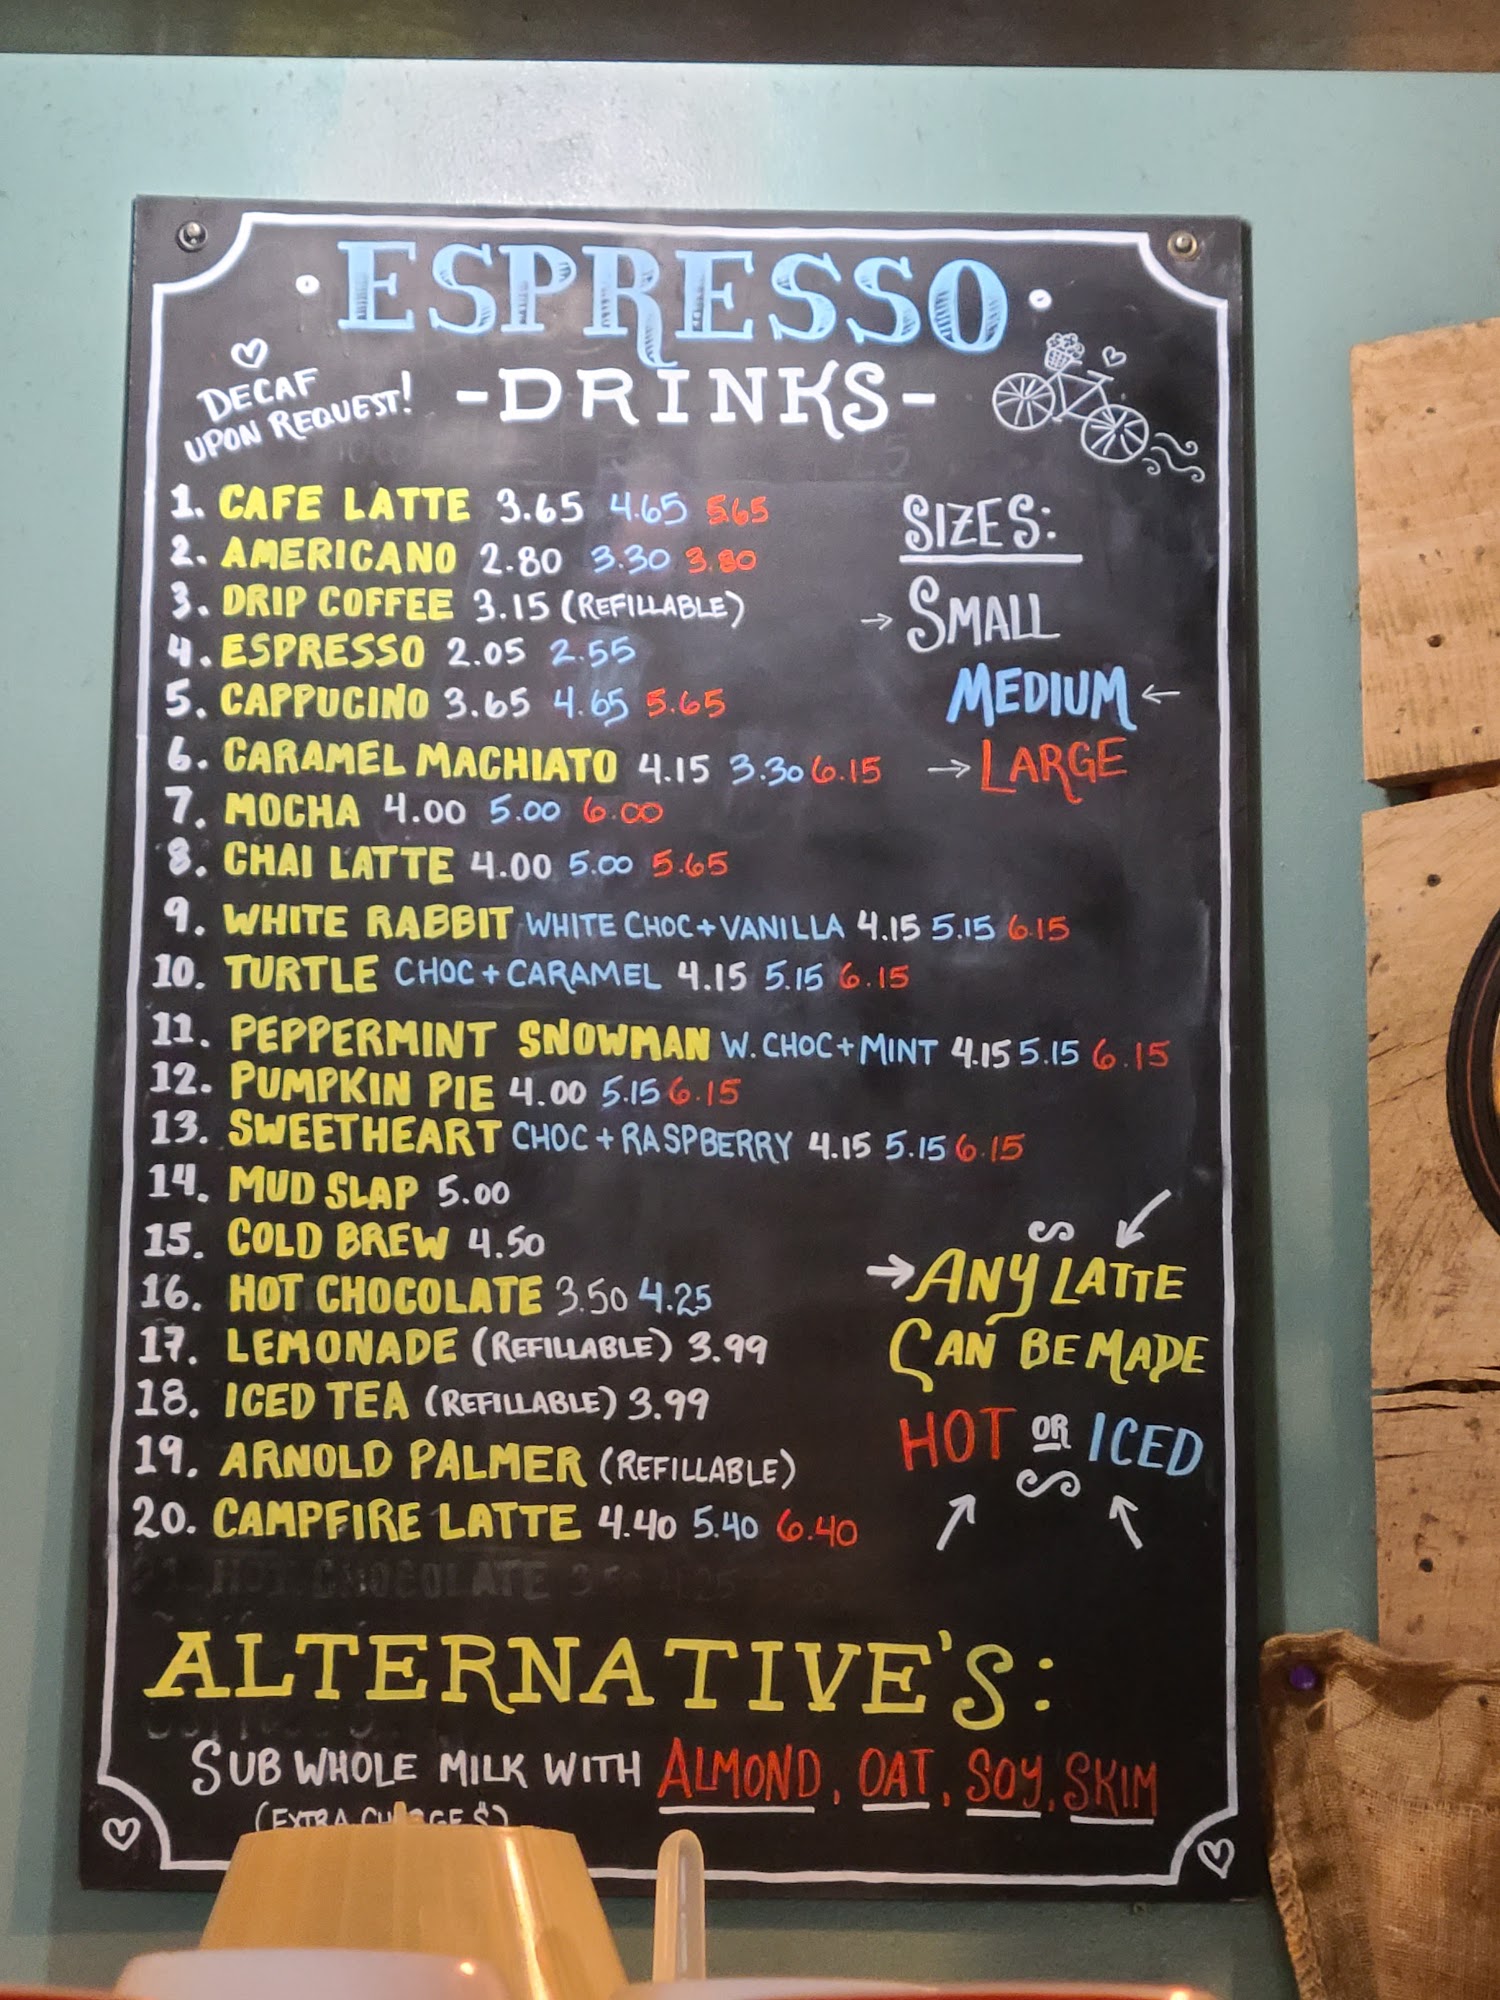 ESPRESSO
-DRINKS-
DECAF
UPON REQUEST!
1. CAFE LATTE 3.65 4.65 5.65
2. AMERICANO 2.80 3.30 3.80
3. DRIP COFFEE 3.15 (REFILLABLE)
4. ESPRESSO 2.05 2.55
5. CAPPUCINO 3.65 4.65 5.65
6. CARAMEL MACHIATO 4.15 3.30 6.15
7. MOCHA 4.00 5.00 6.00
8. CHAI LATTE 4.00 5.00 5.65
9. WHITE RABBIT WHITE CHOC + VANILLA 4.15 5.15 6.15
10. TURTLE CHOC + CARAMEL 4.15 5.15 6.15
11. PEPPERMINT SNOWMAN W. CHOC + MINT 4.15 5.15 6.15
12. PUMPKIN PIE 4.00 5.15 6.15
13. SWEETHEART CHOC + RASPBERRY 4.15 5.15 6.15
14. MUD SLAP 5.00
15. COLD BREW 4.50
16. HOT CHOCOLATE 3.50 4.25
17. LEMONADE (REFILLABLE) 3.99
18. ICED TEA (REFILLABLE) 3.99
19. ARNOLD PALMER (REFILLABLE)
20. CAMPFIRE LATTE 4.40 5.40 6.40
SIZES:
→ SMALL
MEDIUM ←
→ LARGE
→ ANY LATTE
CAN BE MADE
HOT OR ICED
HOT CHOCOLATE
ALTERNATIVE'S:
SUB WHOLE MILK WITH ALMOND, OAT, SOY, SKIM
(EXTRA CHARGE $)